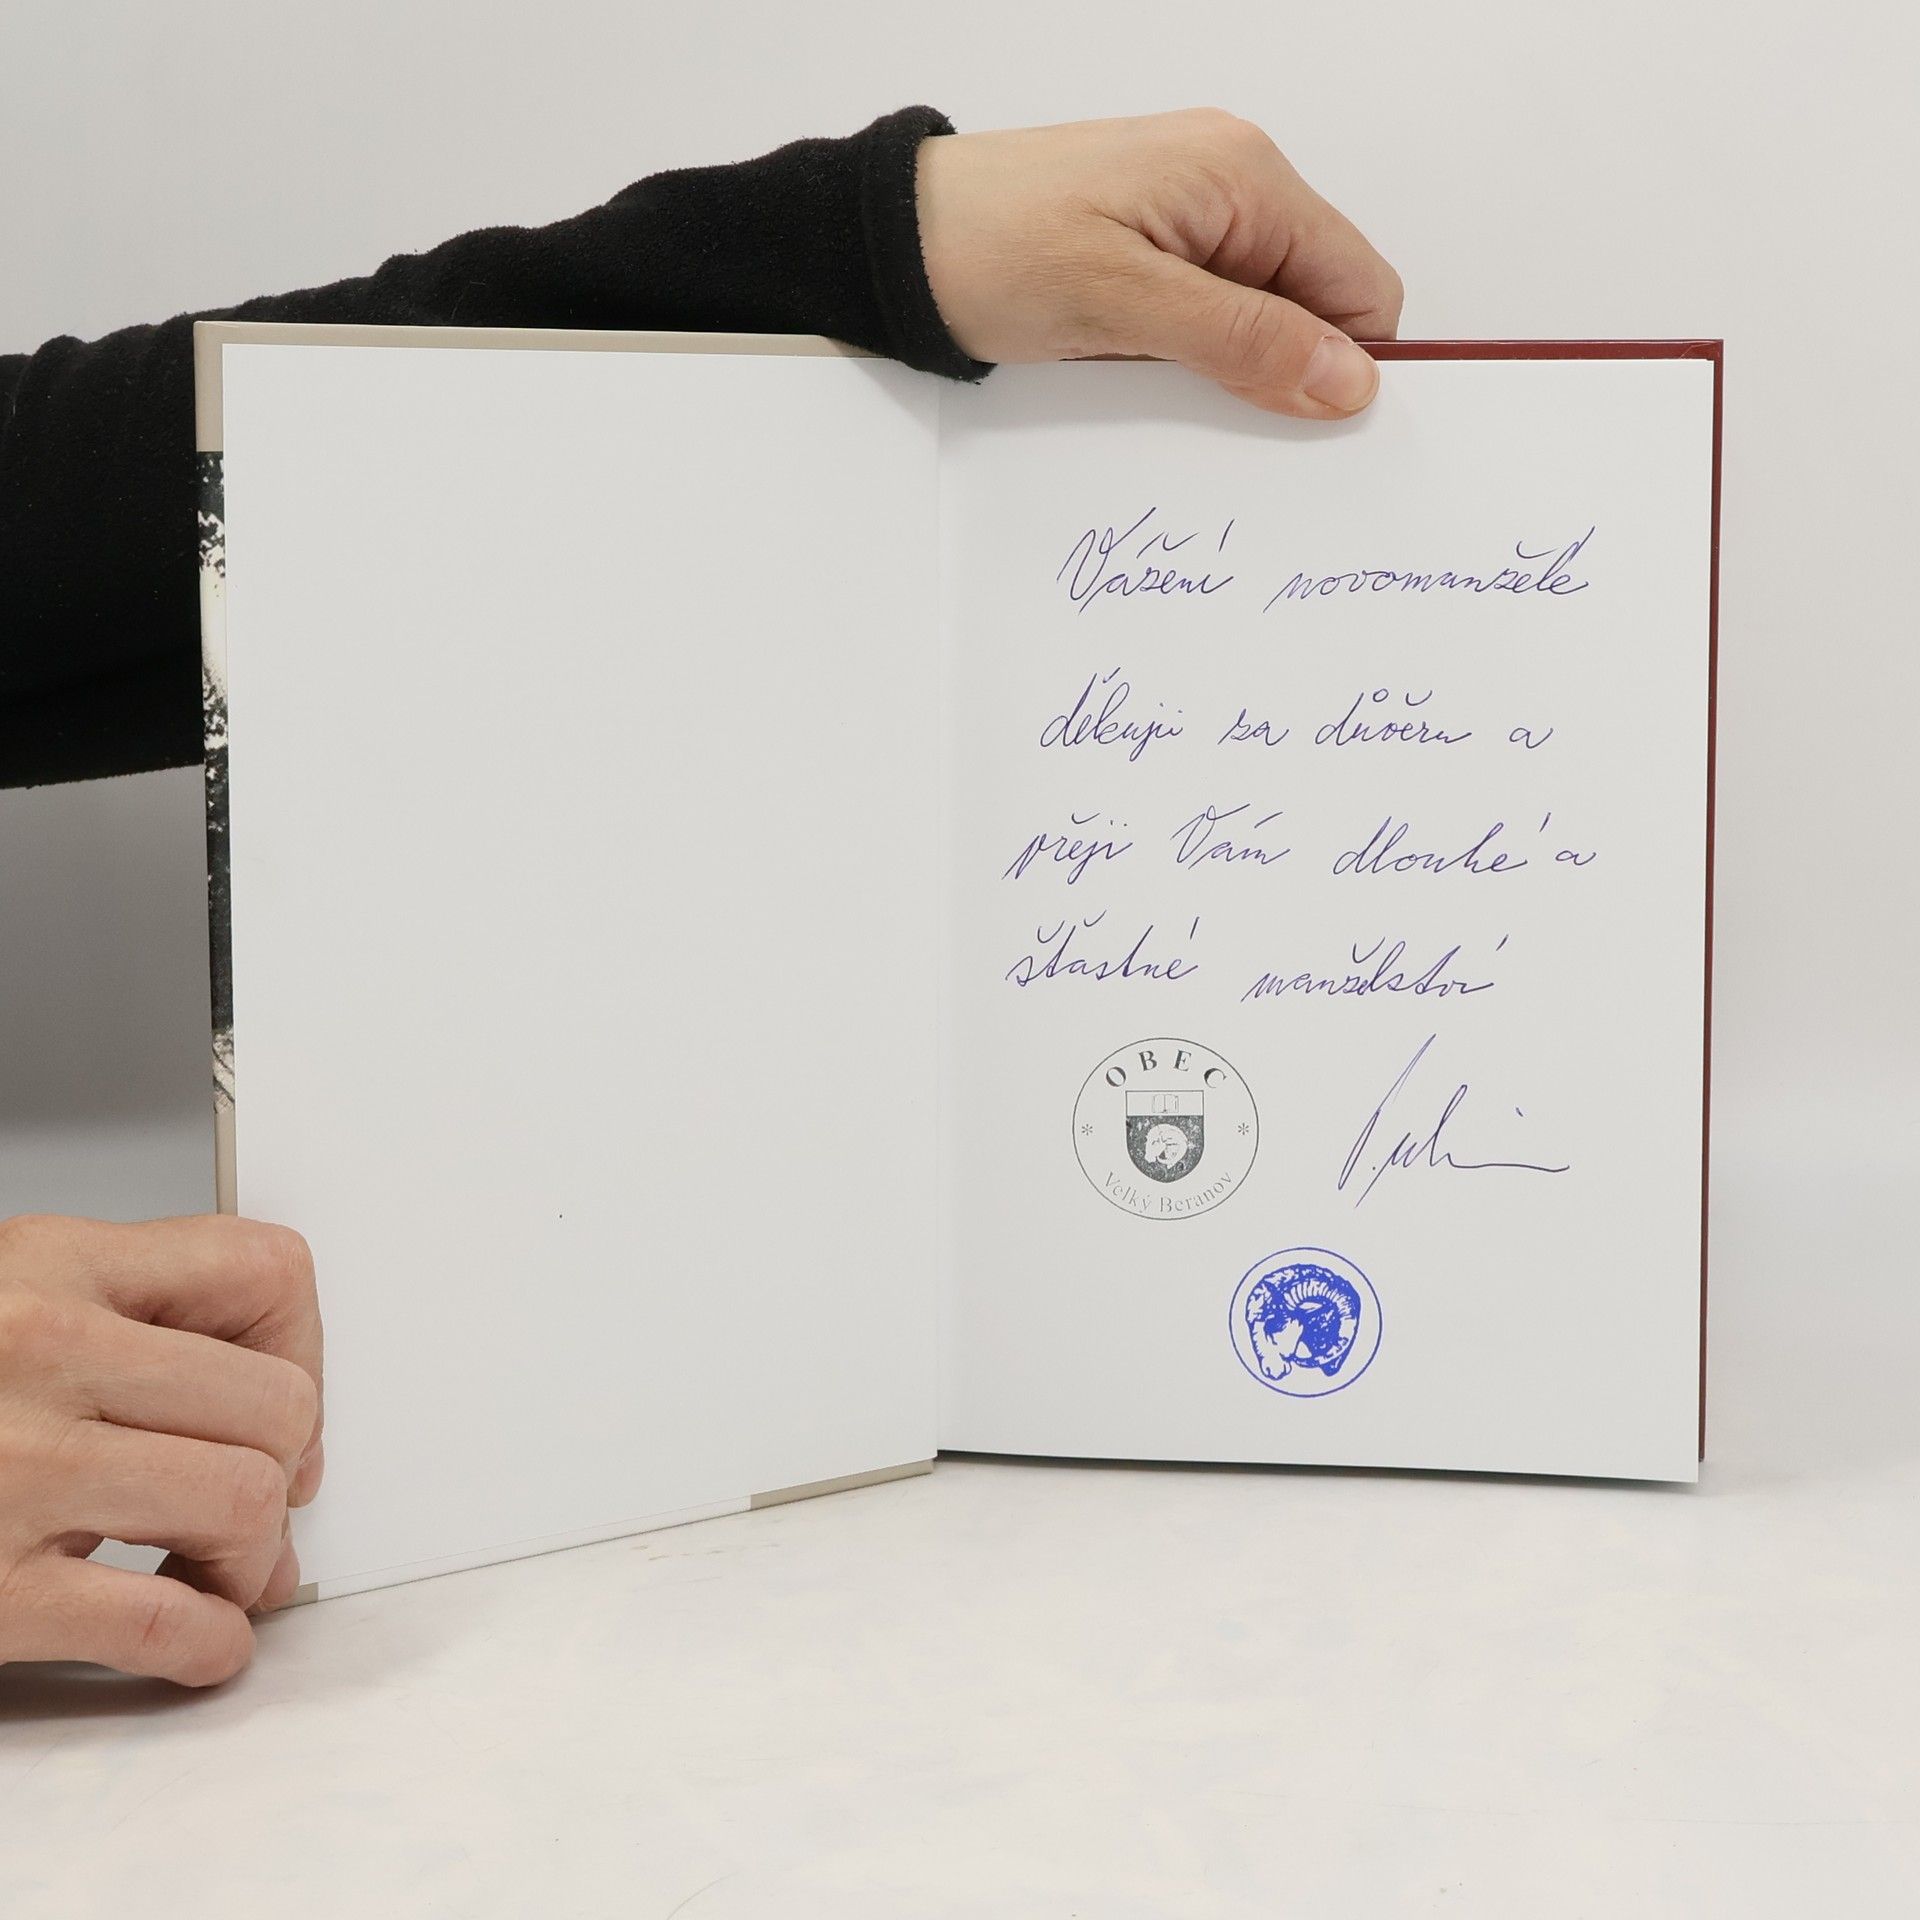 Vážení novomanželé
děkuji za důvěru a
přeji Vám dlouhé a
šťastné manželství
OBEC
* *
Velký Beranov